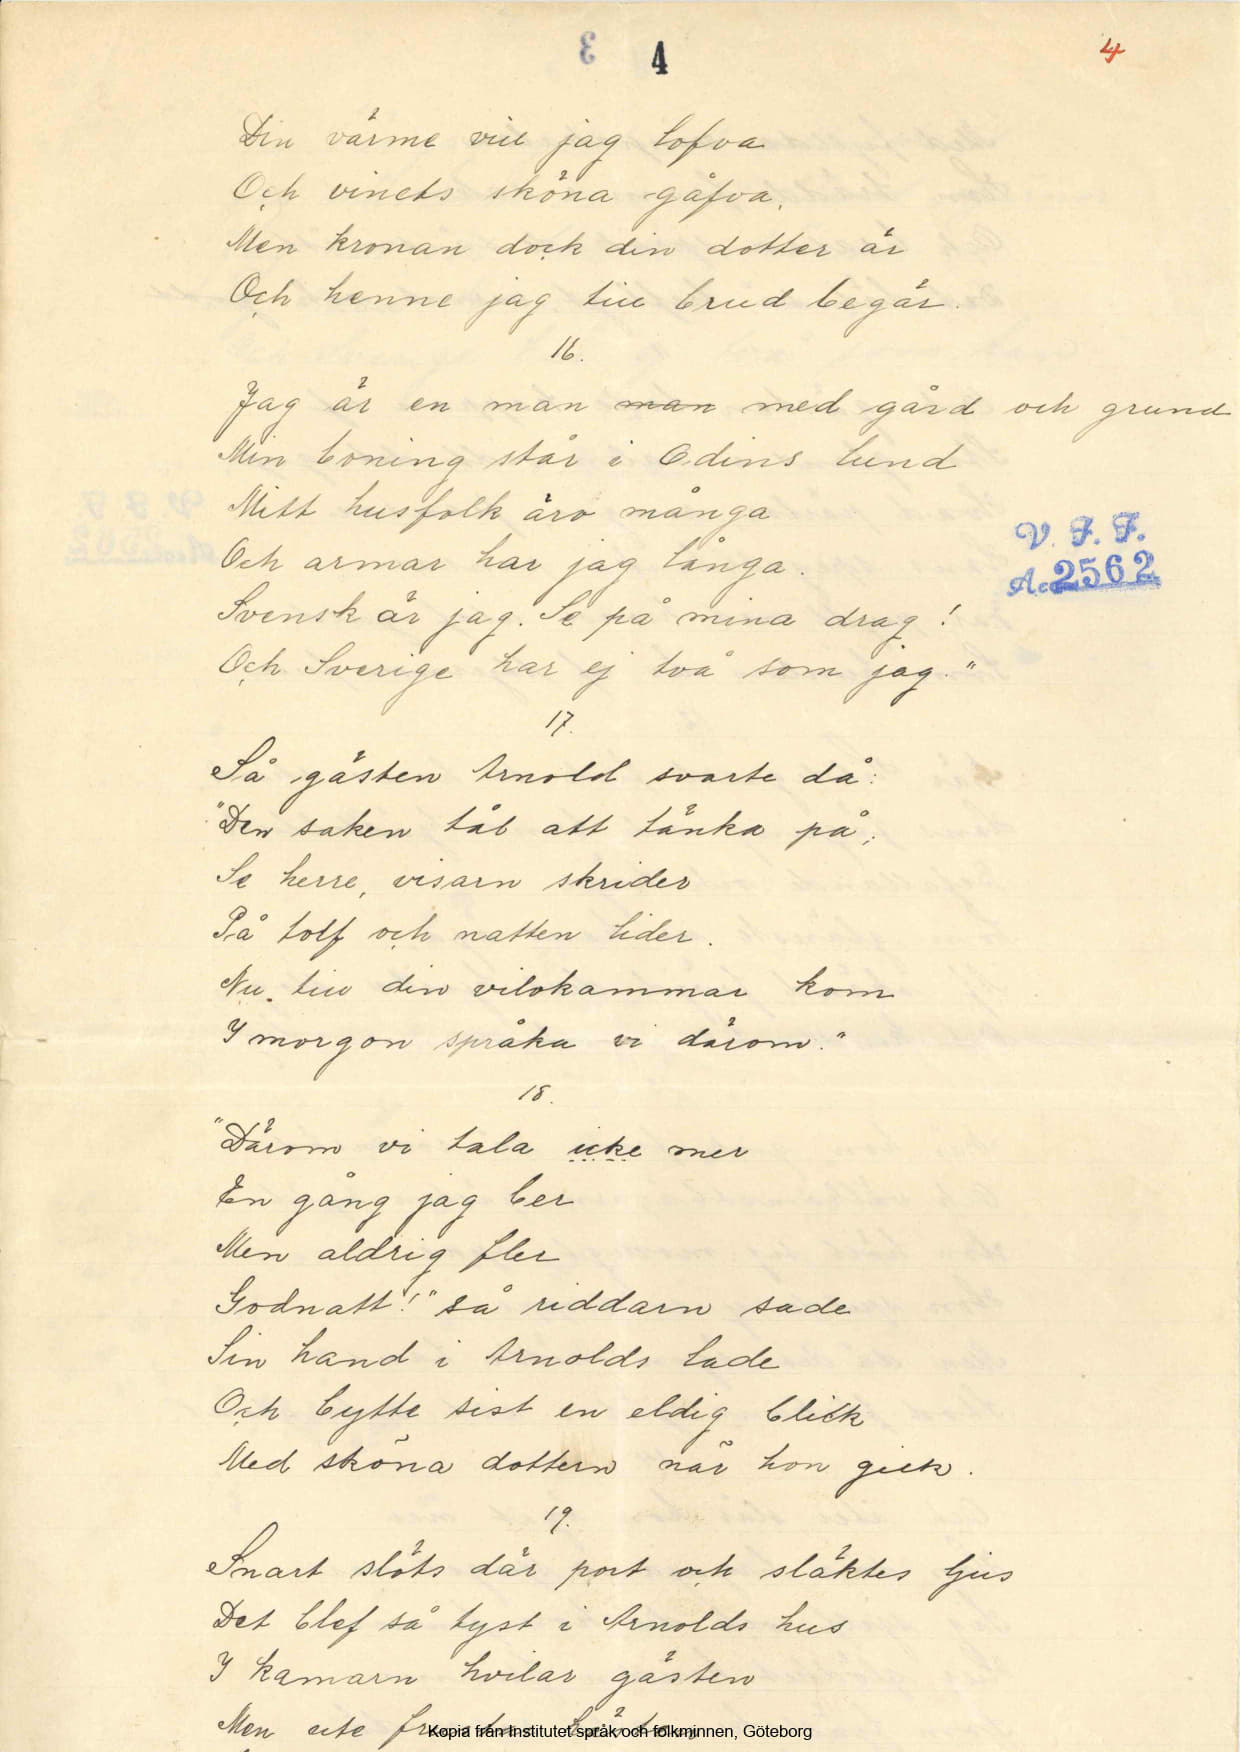 3 4 4
Din värme vill jag lofva
Och vinets sköna gåfva,
Men kronan dock din dotter är
Och henne jag till brud begär.
16.
Jag är en man man med gård och grund
Min boning står i Odins lund
Mitt husfolk äro många
Och armar har jag långa.
Svensk är jag. Se på mina drag!
Och Sverige har ej två som jag."
V. F. F.
Acc 2562
17.
Så gästen Arnold svarte då:
"Den saken tål att tänka på,
Se herre, visarn skrider
På tolf och natten lider.
Nu till din vilokammar kom
I morgon språka vi därom."
18.
"Därom vi tala icke mer
En gång jag ber
Men aldrig fler
Godnatt!" så riddarn sade
Sin hand i Arnolds lade
Och bytte sist en eldig blick
Med sköna dottern när hon gick.
19.
Snart slöts där port och släktes ljus
Det blef så tyst i Arnolds hus
I kamarn hvilar gästen
Men ute
Kopia från Institutet språk och folkminnen, Göteborg